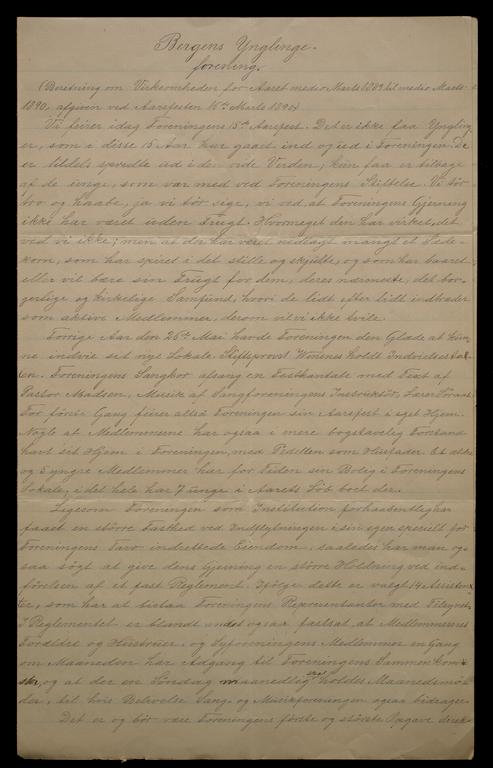 Bergens Ynglinge-
forening.
(Beretning om Virksomheden for Aaret medio Marts 1889 til medio Marts
1890, afgiven ved Aarsfesten 16de Marts 1890)
Vi feirer idag Foreningens 15de Aarsfest. Det er ikke faa Yngling-
er, som i disse 15 Aar har gaaet ind og ud i Foreningen. De
er tildels spredte ud i de vide Verden, kun faa er tilbage
af de ivrige, som var med ved Foreningens Stiftelse. Vi tør
tro og haabe, ja vi tør sige, vi ved at Foreningens Gjerning
ikke har været uden Frugt. Hvormeget den har virket, det
ved vi ikke; men at der har været nedlagt mangt et Sæde-
korn, som har spiret i det stille og skjulte, og som har baaret
eller vil bære sin Frugt for dem, deres nærmeste, det bor-
gerlige og kirkelige Samfund, hvori de lidt efter lidt indtræder
som aktive Medlemmer, derom vil vi ikke tvile.
Forrige Aar den 26de Mai havde Foreningen den Glæde at kun-
ne indvie sit nye Lokale. Stiftsprovst Wöniens holdt Indvielsestal-
en. Foreningens Sangkor afsang en Festkantate med Text af
Pastor Madsen, Musik af Sangforeningens Instruktör, Lærer
For første Gang feirer altsaa Foreningen sin Aarsfest i eget Hjem.
Nogle af Medlemmerne har ogsaa i mere bogstavelig Forstand
havt sit Hjem i Foreningen, med Pedellen som Husfader. Et ældre
og 3 yngre Medlemmer har for Tiden sin Bolig i Foreningens
Lokale; i det hele har 7 unge i Aarets Løb boet der.
Ligesom Foreningen som Institution forhaabentlig har
faaet en större Fasthed ved Indflytningen i sin egen specielt for
Foreningens Tarv indrettede Eiendom, saaledes har man og-
saa søgt at give dens Gjerning en större Holdning ved ind-
førelsen af et fast Reglement. Ifölge dette er valgt 14 Assistent-
er, som har at bistaa Foreningens Repræsentanter med Tilsynet.
I Reglementet er blandt andet ogsaa fastsat, at Medlemmernes
Forældre og Hustruer, og Syforeningens Medlemmer en Gang
om Maaneden har Adgang til Foreningens Sammenkom-
ster, og at der en Søndag maanedlig skal holdes Maanedsmö-
der, til hvis Oplivelse Sang- og Musikforeningen ogsaa bidrager.
Det er og bör være Foreningens förste og største Opgave direk-